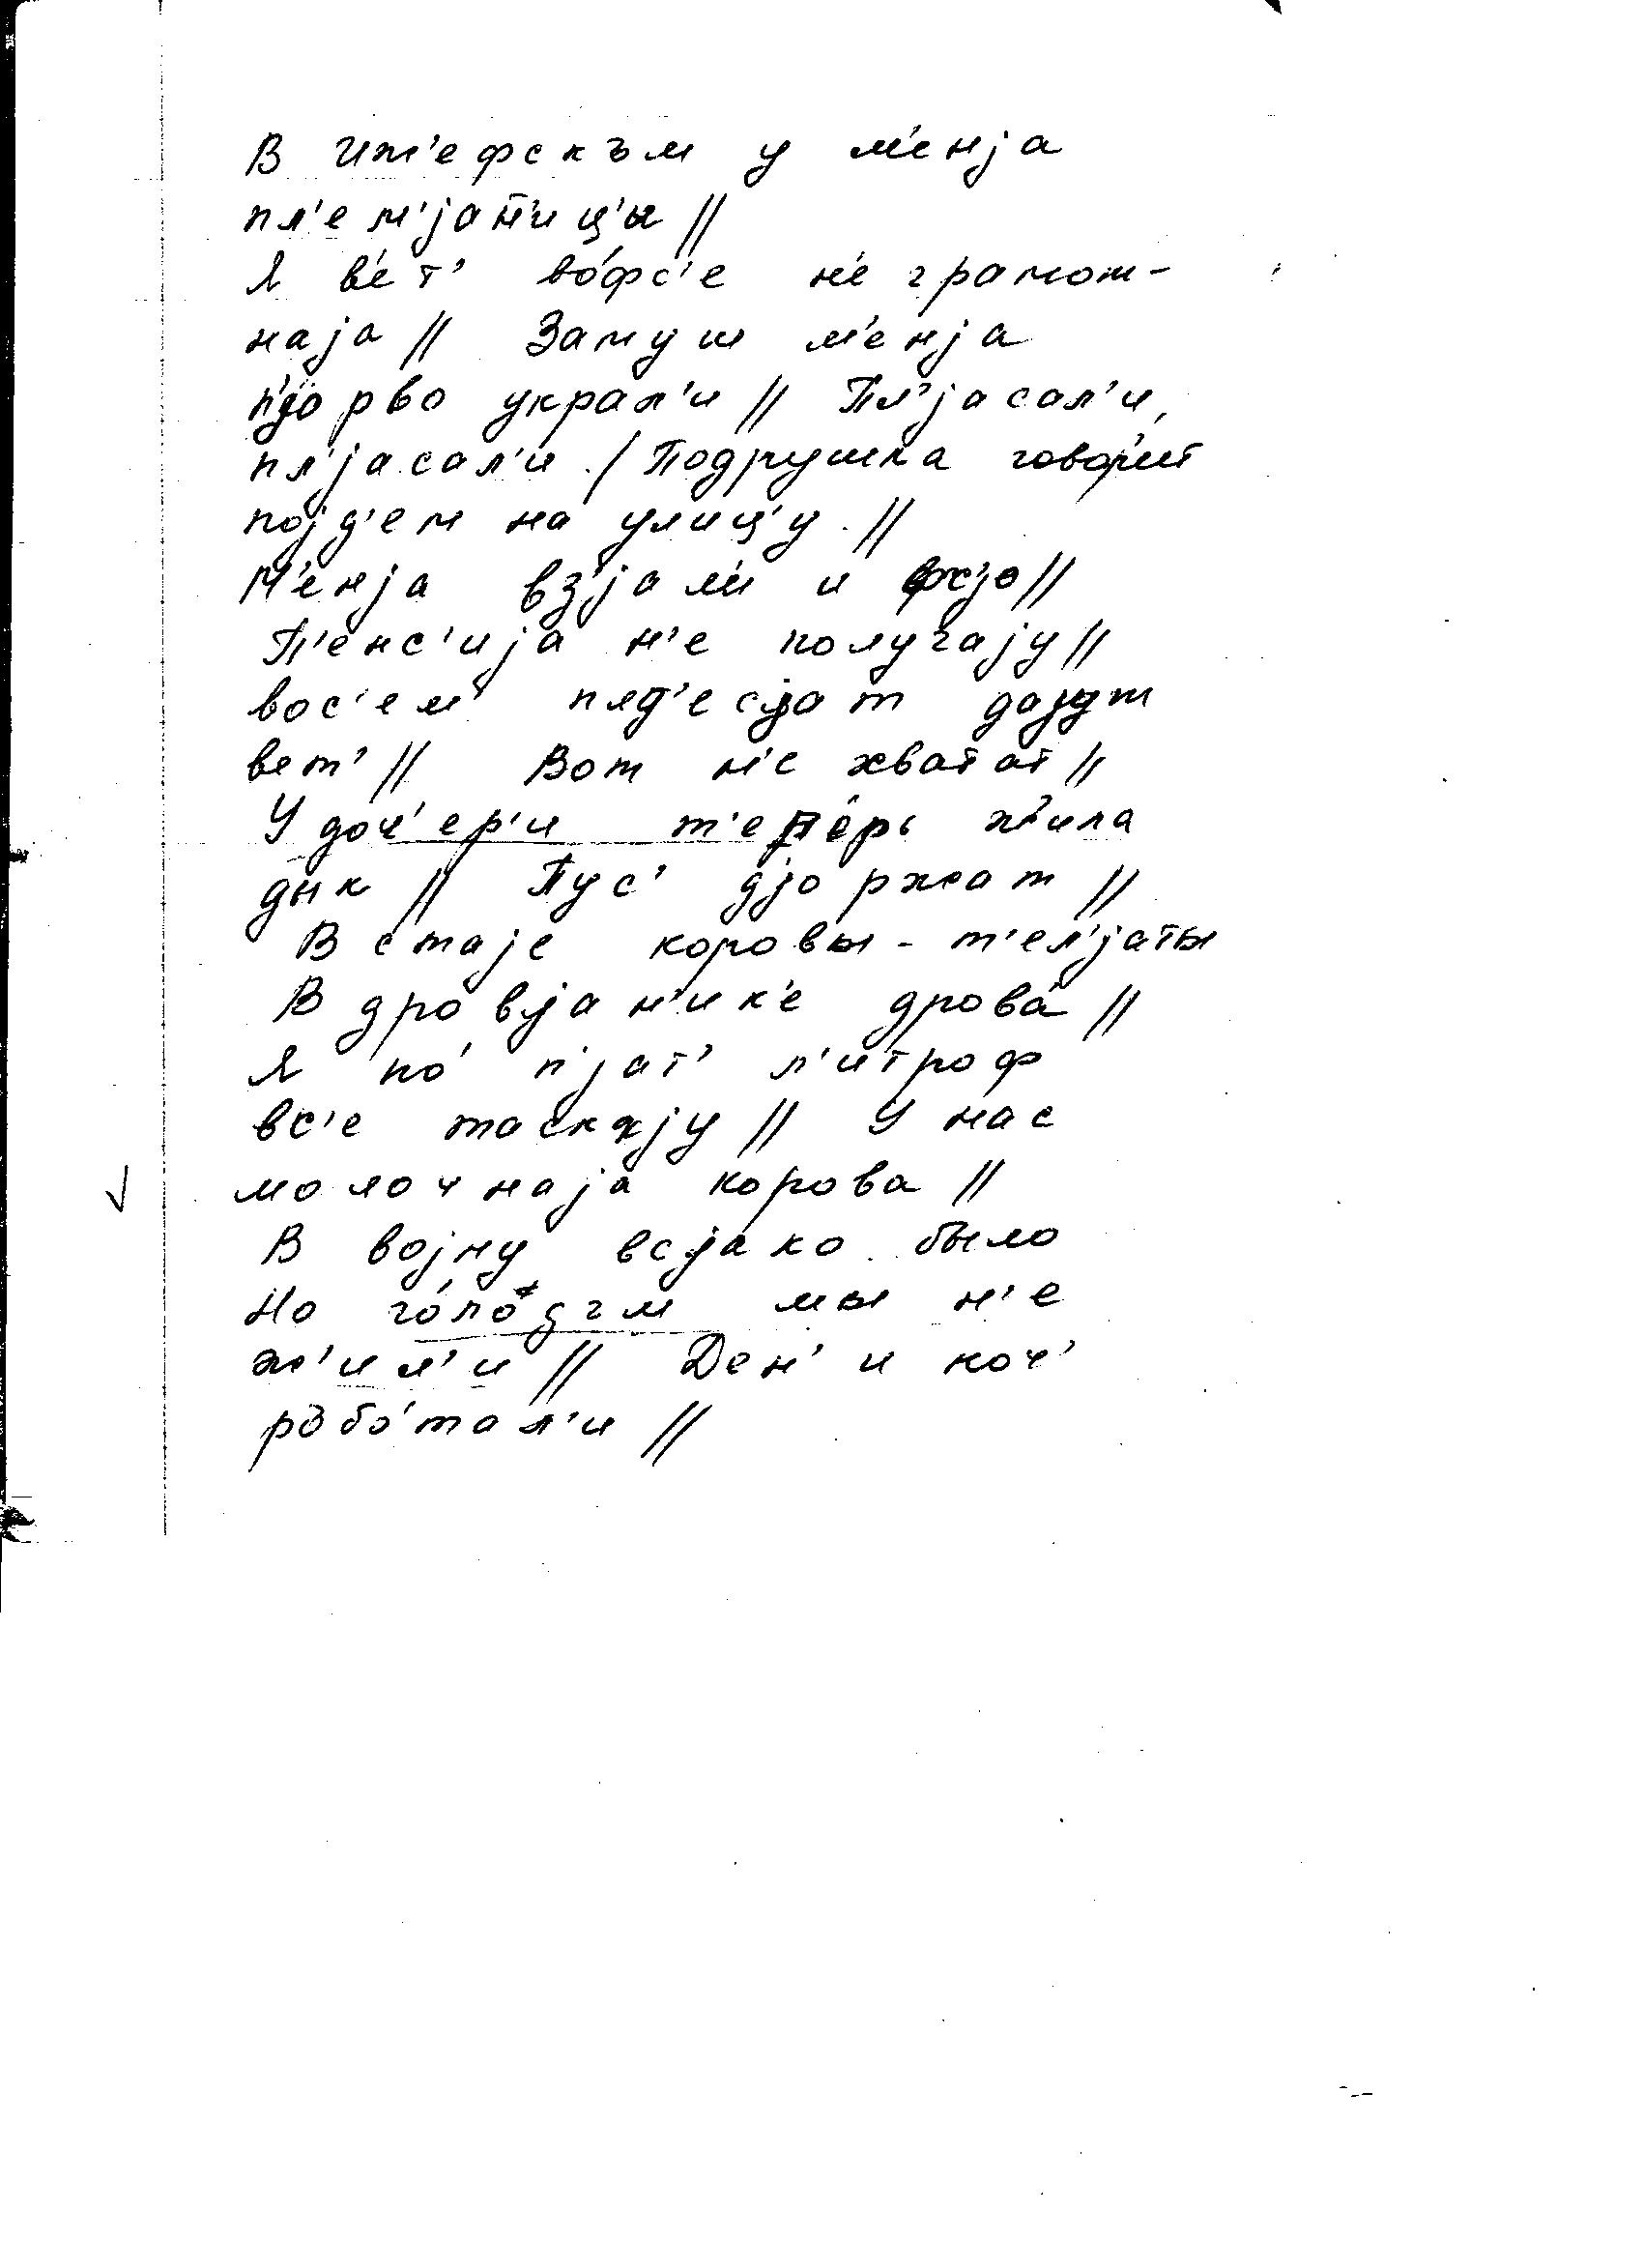 В иж'ефскъм у м'енjа
пл'ем'jан'иц'ы //
Я в'ет' во́фс'е н'е грамот-
наjа // Замуш м'енjа
п'jорво украл'и // Пл'jасал'и,
пл'jасал'и / Подрушка говор'ит
поjд'ем на улиц'у //
М'енjа вз'jал'и и фс'jо //
П'енс'иjа н'е получаjу //
вос'ем' пяд'есjат даjут
вет' // Вот н'е хватат //
У доч'ер'и т'еп'е́рь ж'ила
дык // Пус' дjоржат //
В стаjе коровы - т'ел'jаты
В дровjан'ик'е дрова́ //
Я по́ п'jат' л'итроф
вс'е таскаjу // У нас
молочнаjа корова //
В воjну всjако было
Но го́ло́дъм мы н'е
ж'ил'и // Ден' и ноч'
робо́тал'и //